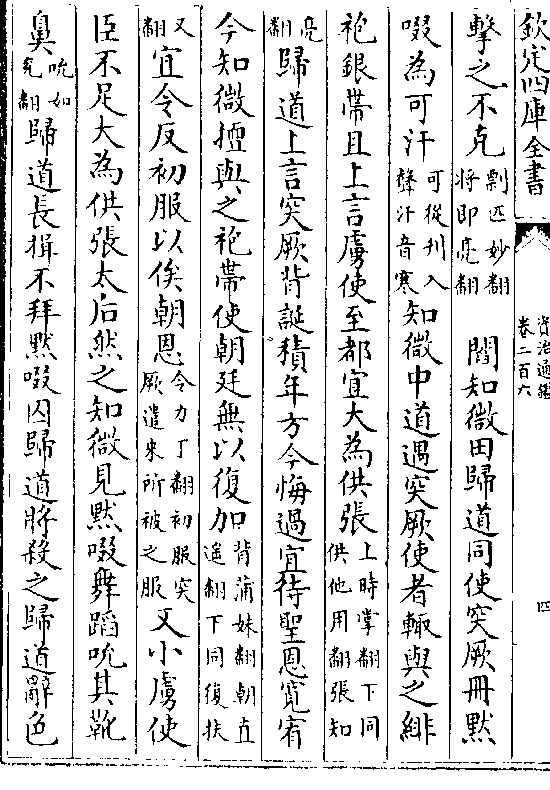 欽定四庫全書
資治通鑑
卷二百六
四
擊之不克剽匹妙翻將即亮翻 閻知微田歸道同使突厥冊默
啜為可汗可從刋入聲汗音寒知微中道遇突厥使者輙與之緋
袍銀帶且上言虜使至都宜大為供張上時掌翻下同供他用翻張知
亮翻歸道上言突厥背誕積年方今悔過宜待聖恩寛宥
今知微擅與之袍帶使朝廷無以復加背蒲妹翻朝直遥翻下同復扶
又翻宜令反初服以俟朝恩令力丁翻初服突厥遣來所被之服又小虜使
臣不足大為供張太后然之知微見默啜舞蹈吮其靴
鼻吮如兖翻歸道長揖不拜默啜囚歸道將殺之歸道辭色